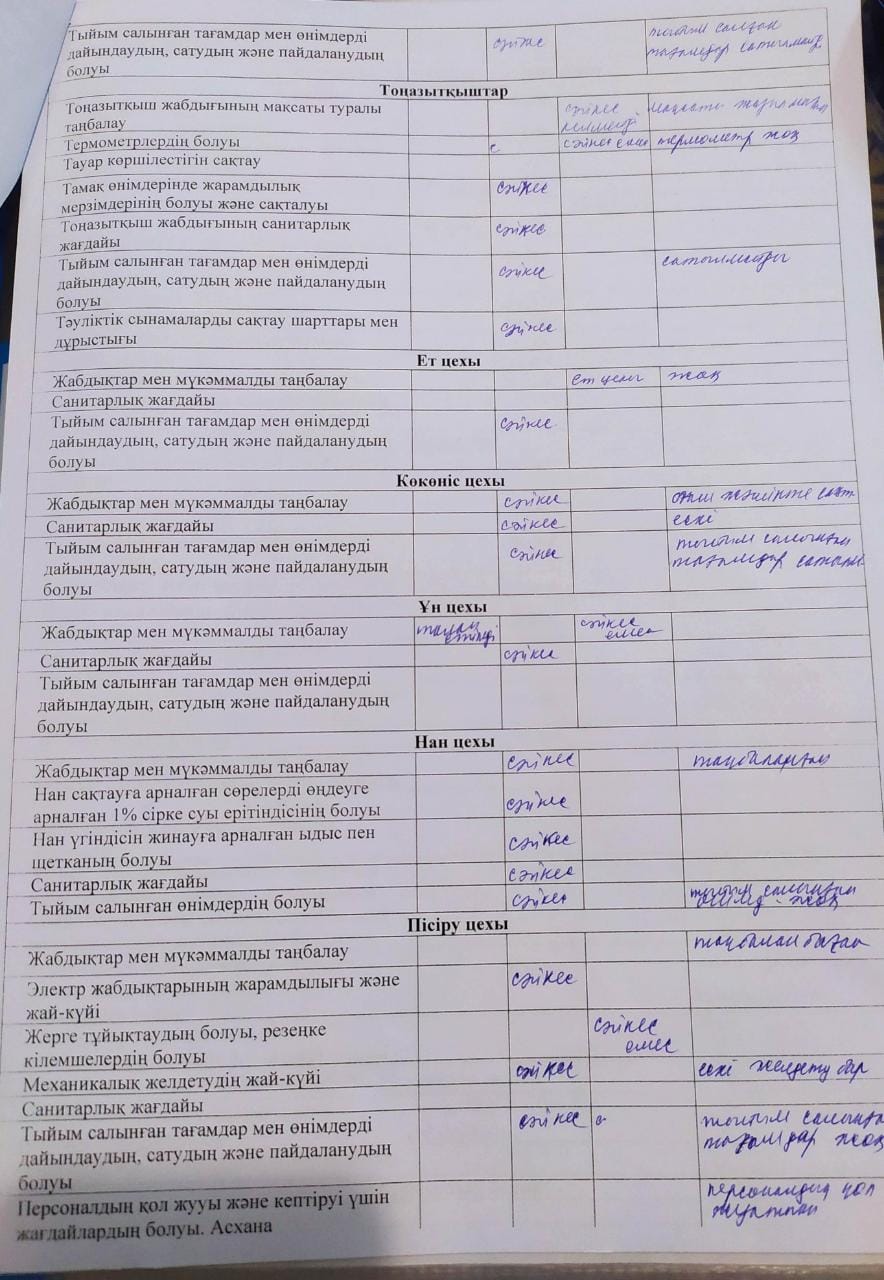 Тыйым салынған тағамдар мен өнімдерді сәйкес тыйым салған
дайындаудың, сатудың және пайдаланудың тағамдар сатылмайды
болуы
Тоңазытқыштар
Тоңазытқыш жабдығының мақсаты туралы сәйкес мақсаты жазылмаған
таңбалау келмейді
Термометрлердің болуы с сәйкес емес термометр жоқ
Тауар көршілестігін сақтау
Тамақ өнімдерінде жарамдылық сәйкес
мерзімдерінің болуы және сақталуы
Тоңазытқыш жабдығының санитарлық сәйкес
жағдайы
Тыйым салынған тағамдар мен өнімдерді сәйкес сатылмайды
дайындаудың, сатудың және пайдаланудың
болуы
Тәуліктік сынамаларды сақтау шарттары мен сәйкес
дұрыстығы
Ет цехы
Жабдықтар мен мүкәммалды таңбалау ет цехы жоқ
Санитарлық жағдайы
Тыйым салынған тағамдар мен өнімдерді сәйкес
дайындаудың, сатудың және пайдаланудың
болуы
Көкөніс цехы
Жабдықтар мен мүкәммалды таңбалау сәйкес
Санитарлық жағдайы сәйкес ескі
Тыйым салынған тағамдар мен өнімдерді сәйкес тыйым салынған
дайындаудың, сатудың және пайдаланудың тағамдар
болуы
Ұн цехы
Жабдықтар мен мүкәммалды таңбалау талап етіледі сәйкес емес
Санитарлық жағдайы сәйкес
Тыйым салынған тағамдар мен өнімдерді
дайындаудың, сатудың және пайдаланудың
болуы
Нан цехы
Жабдықтар мен мүкәммалды таңбалау сәйкес таңбаланған
Нан сақтауға арналған сөрелерді өңдеуге сәйкес
арналған 1% сірке суы ерітіндісінің болуы
Нан үгіндісін жинауға арналған ыдыс пен сәйкес
щетканың болуы
Санитарлық жағдайы сәйкес
Тыйым салынған өнімдердің болуы сәйкес тыйым салынған
жоқ
Пісіру цехы
Жабдықтар мен мүкәммалды таңбалау
Электр жабдықтарының жарамдылығы және сәйкес
жай-күйі
Жерге тұйықтаудың болуы, резеңке сәйкес
кілемшелердің болуы емес
Механикалық желдетудің жай-күйі сәйкес ескі желдету бар
Санитарлық жағдайы
Тыйым салынған тағамдар мен өнімдерді сәйкес с тыйым салынған
дайындаудың, сатудың және пайдаланудың тағамдар жоқ
болуы
Персоналдың қол жууы және кептіруі үшін персоналдың қол
жағдайлардың болуы. Асхана